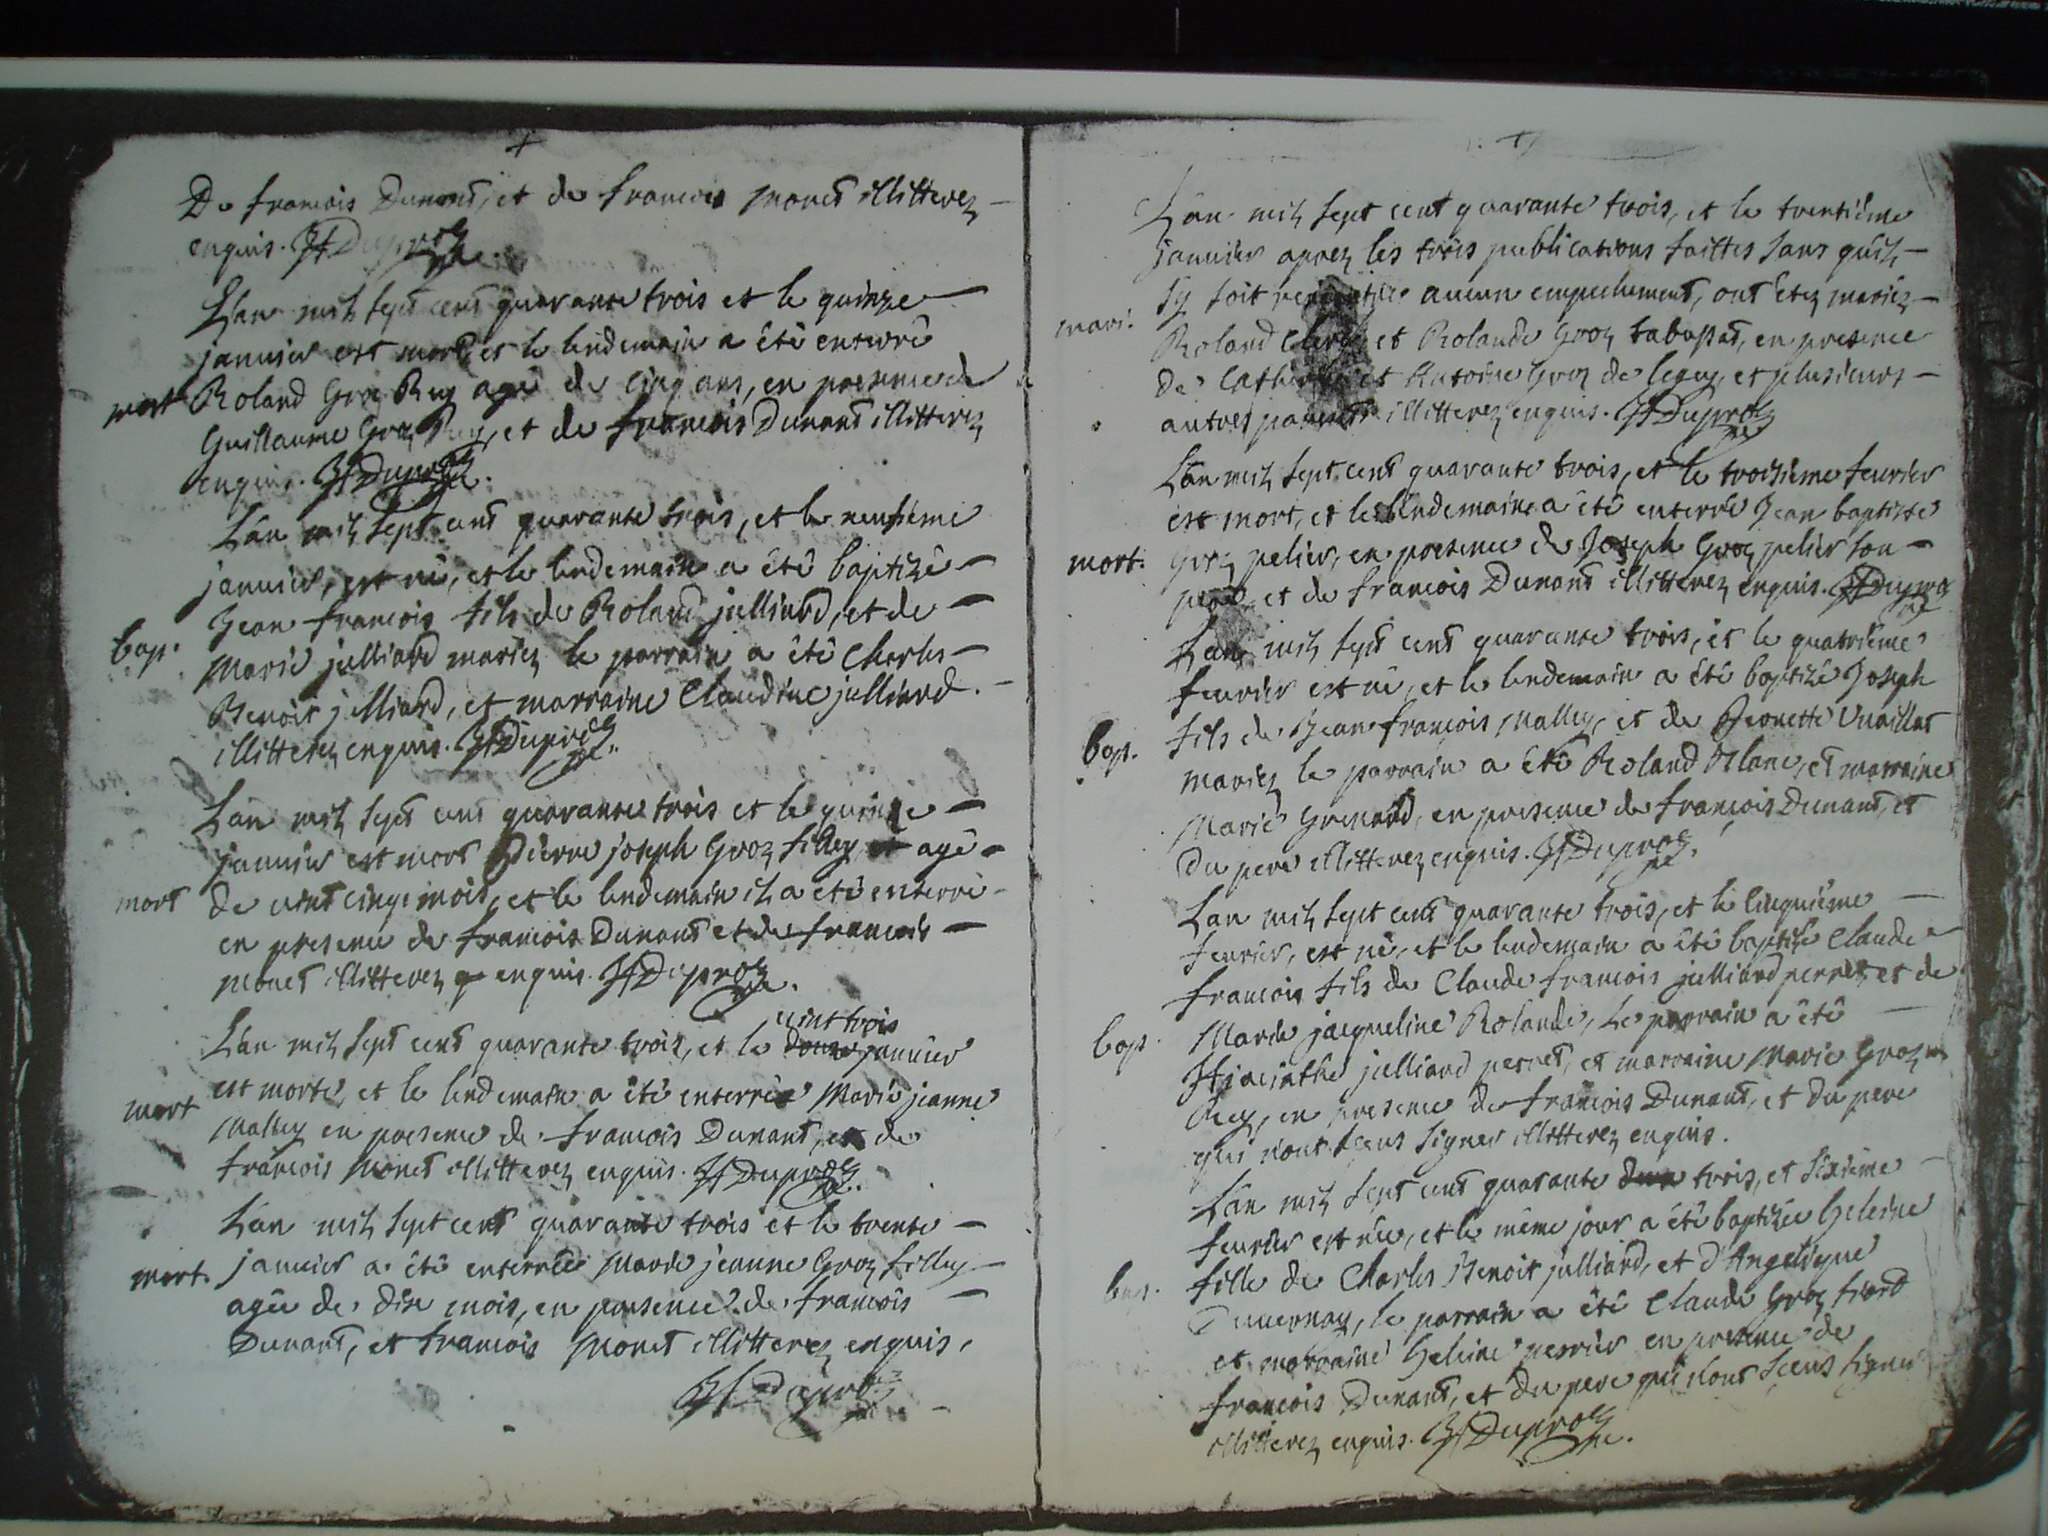 De francois Dunant, et de francois monet illitterez
enquis. JfDuproz
L'an mil sept cent quarante trois et le quinze
janvier est mort, et le lendemain a été enterré
mort Roland Groz Rey agé de cinq ans, en presence de
Guillaume Groz Rey, et de francois Dunant illitterez
enquis. JfDuproz
L'an mil sept cent quarante trois, et le neufième
janvier, est né, et le lendemain a été baptizé
Jean francois fils de Roland julliard, et de
bap. Marie julliard mariez le parrain a été Charles
Benoit julliard, et marraine Claudine julliard.
illitterez enquis. JfDuproz
L'an mil sept cent quarante trois et le quinze
janvier est mort Pierre joseph Groz filley agé
mort de vint cinq mois, et le lendemain il a été enterré
en presence de francois Dunant et de francois
monet illitterez enquis. JfDuproz
vint trois
L'an mil sept cent quarante trois, et le janvier
est morte, et le lendemain a été enterrée Marie jeanne
mort Malley en presence de francois Dunant, et de
francois monet illitterez enquis. JfDuproz
L'an mil sept cent quarante trois et le trente
mort. janvier a été enterrée Marie jeanne Groz filley
agée de dix mois, en presence de francois
Dunant, et francois monet illitterez enquis,
JfDuproz
L'an mil sept cent quarante trois, et le trentième
janvier aprez les trois publications faittes sans qu'il
sy soit aucun empechement, ont étez mariez
mari. Roland et Rolande Groz tabussat, en presence
de et Antoine Groz de leguy, et plusieurs
autres parents illitterez enquis. JfDuproz
L'an mil sept cent quarante trois, et le troisième fevrier
est mort, et le lendemain a été enterré Jean baptiste
mort. Groz pelier, en presence de Joseph Groz pelier son
pere et de francois Dunant illitterez enquis. JfDuproz
L'an mil sept cent quarante trois, et le quatrième
fevrier est né, et le lendemain a été baptizé Joseph
bap. fils de Jean francois Malley, et de Jeonette Vuaillat
mariez le parrain a été Roland Allanc, et marraine
Marie Grenard, en presence de francois Dunant, et
du pere illitterez enquis. JfDuproz
L'an mil sept cent quarante trois, et le cinquième
fevrier, est né, et le lendemain a été baptizé Claude
francois fils de Claude francois julliard pernet et de
bap. Marie jacqueline Rolande, le parrain a été
Hiacinthe julliard pernet, et marraine Marie Groz
Rey, en presence de francois Dunant, et du pere
qui n'ont sceus signer illitterez enquis.
L'an mil sept cent quarante trois, et sixième
fevrier est née, et le même jour a été baptizée Heleine
bap. fille de Charles Benoit julliard, et d'Angelique
Duvernay, le parrain a été Claude Groz
et marraine Heleine perrier en presence de
francois Dunant, et du pere qui n'ont sceus signer
illitterez enquis. JfDuproz